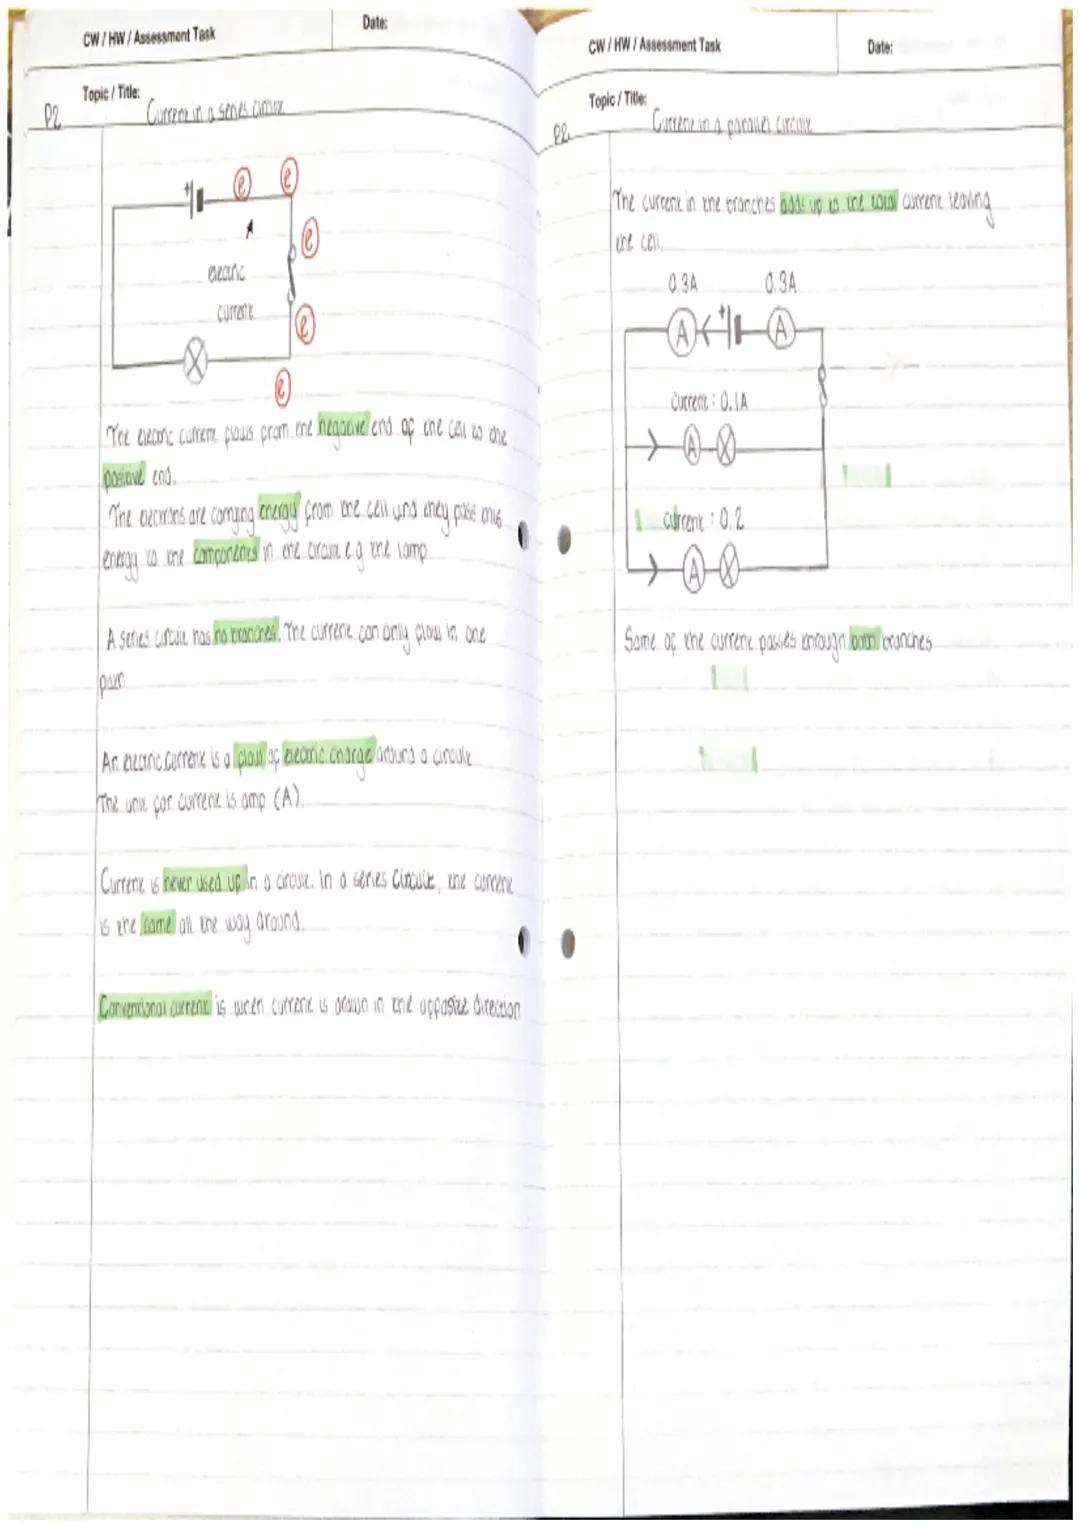 CW / HW / Assessment Task
Date:
Topic / Title:
P2
Current in a series circuit
+
e
e
e
electric
current
e
e
The electric current flows from the negative end of the cell to the
positive end.
The electrons are carrying energy from the cell and they pass this
energy to the components in the circuit e.g the lamp
A series circuit has no branches. The current can only flow in one
path
An electric current is a flow of electric charge around a circuit
The unit for current is amp (A).
Current is never used up in a circuit. In a series circuit, the current
is the same all the way around.
Conventional current is when current is drawn in the opposite direction
CW / HW / Assessment Task
Date:
Topic / Title:
P2
Current in a parallel circuit
The current in the branches adds up to the total current leaving
the cell.
0.3A 0.3A
A + A
current : 0.1A
A
current : 0.2
A
Some of the current passes through both branches